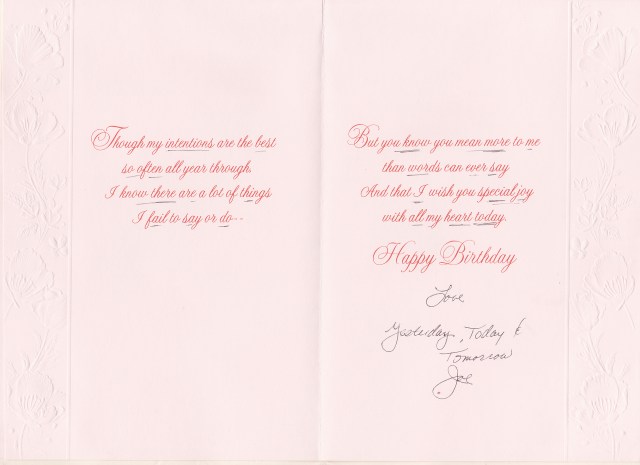 Though my intentions are the best
so often all year through,
I know there are a lot of things
I fail to say or do--
But you know you mean more to me
than words can ever say
And that I wish you special joy
with all my heart today.
Happy Birthday
Love
Yesterday, Today &
Tomorrow
Joe